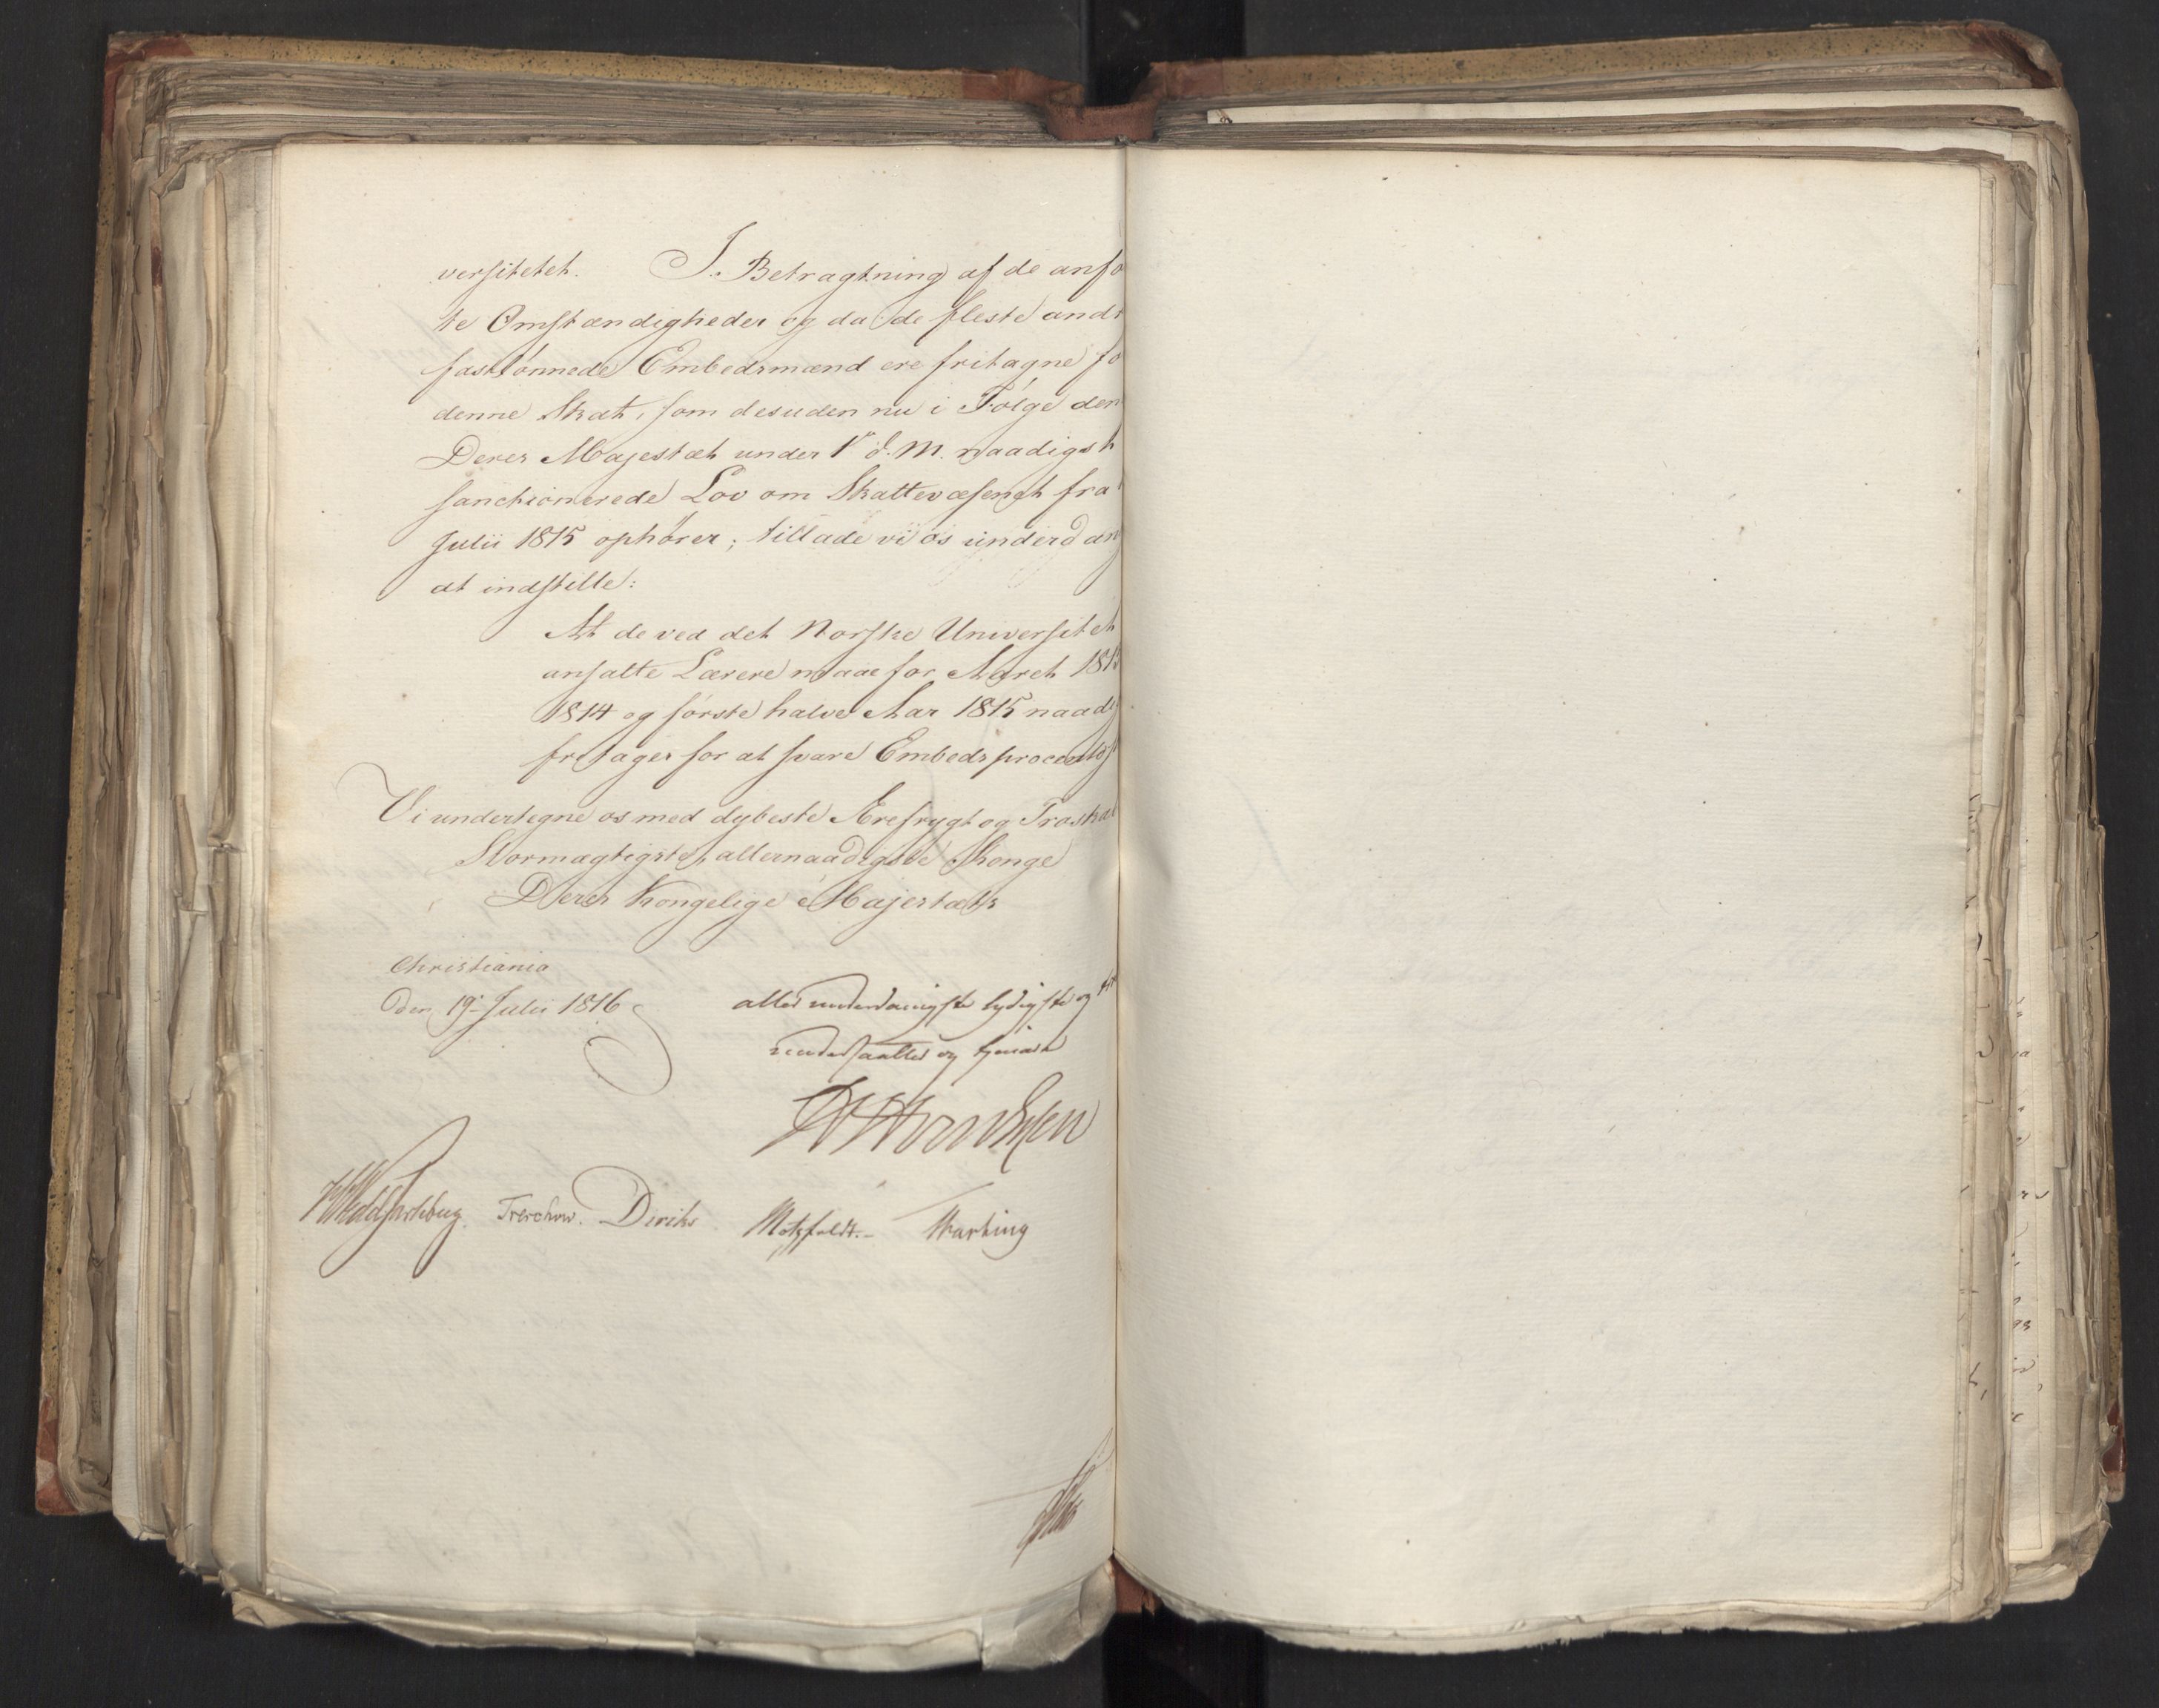 versitetet. I Betragtning af de anfø
te Omstændigheder og da de fleste andr
fastlønnede Embedsmænd ere fritagne fo
denne Skat, som desuden nu i Følge den
Deres Majestæt under 1ste d. M. naadigst
sanctionerede Lov om Skattevæsenet fra
Julii 1815 ophører; tillade vi os underdan
at indstille:
At de ved det Norske Universitet
ansatte Lærere maae for Aaret 1813
1814 og første halve Aar 1815 naadig
fritages for at svare Embedsprocentsk
Vi undertegne os med dybeste Ærefrygt og Troskab
Stormægtigste, allernaadigste Konge
Deres Kongelige Majestæts
Christiania
den 19de Julii 1816
allerunderdanigste lydigste og
undersaatter og tjenere
Treschow. Diriks Motzfeldt.-